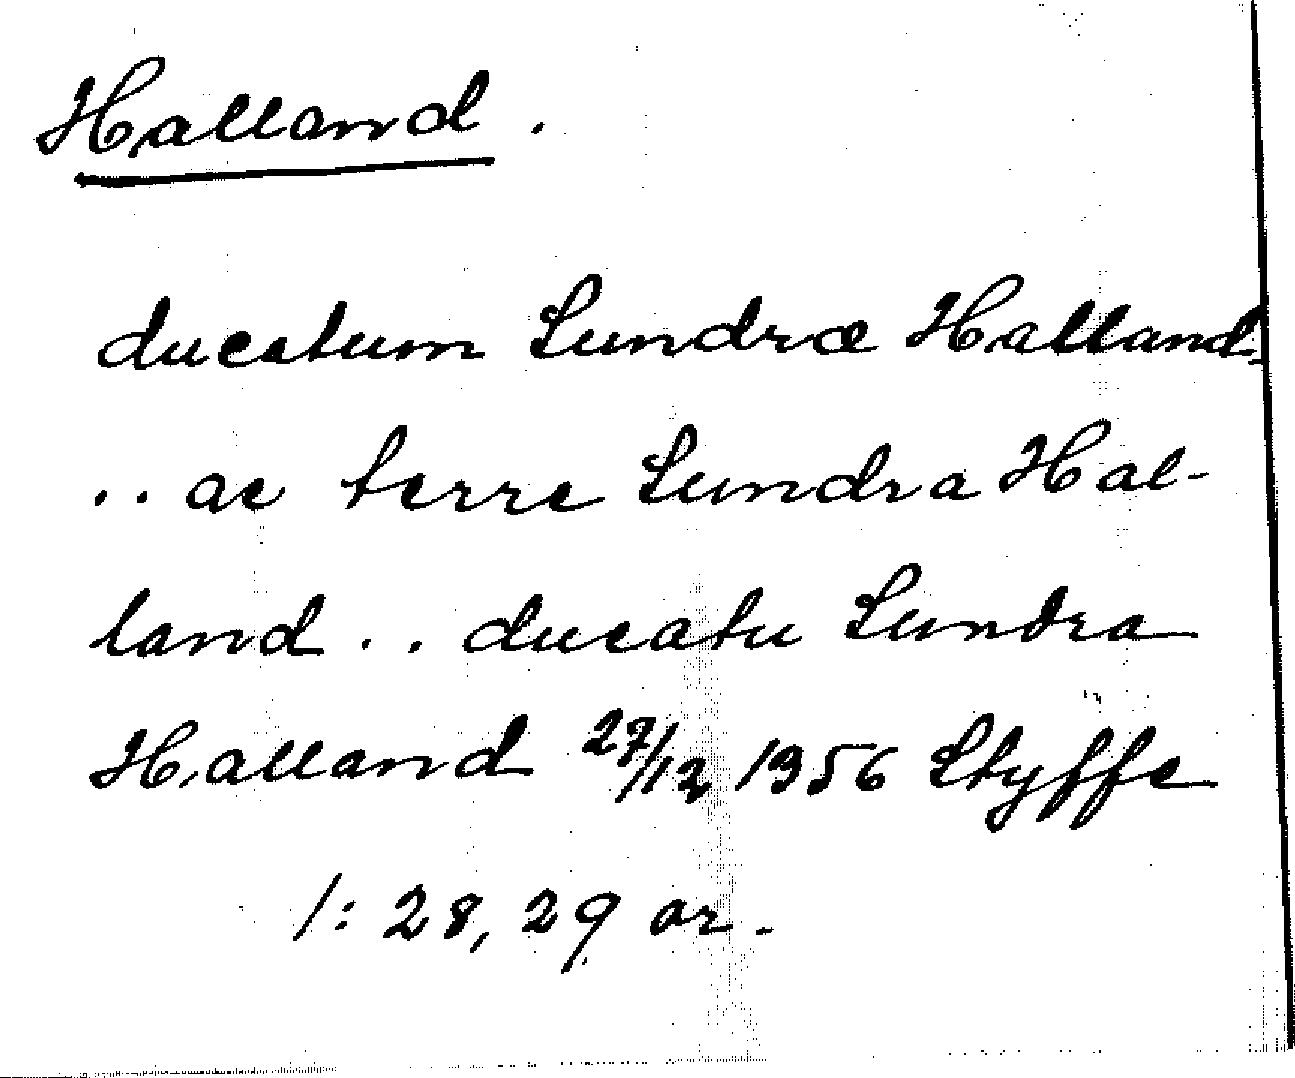 Halland.
ducatum Sundræ Halland
.. ac terre Sundra Hal-
land .. ducatu Sundra
Halland 27/12 1356 Styffe
1: 28, 29 or.